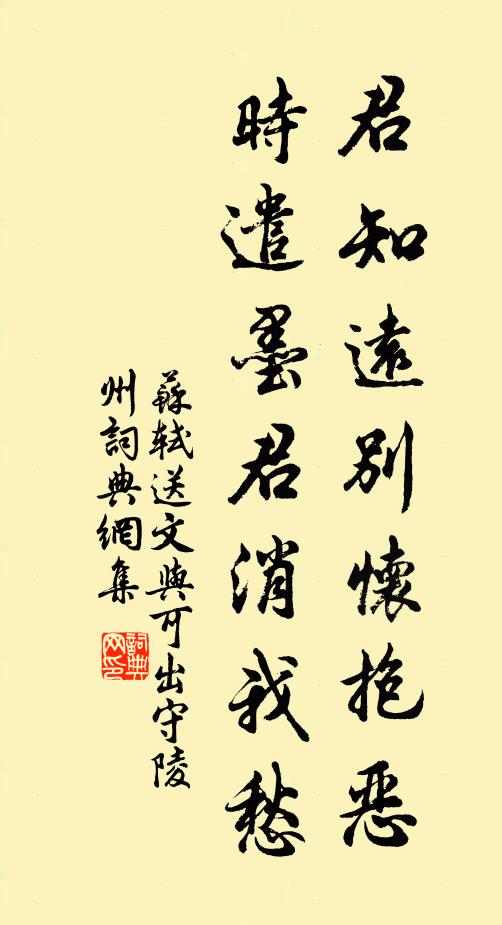 君知遠別懷抱惡
時遣墨君消我愁
蘇軾送文與可出守陵
州詞典網集
詞典網印